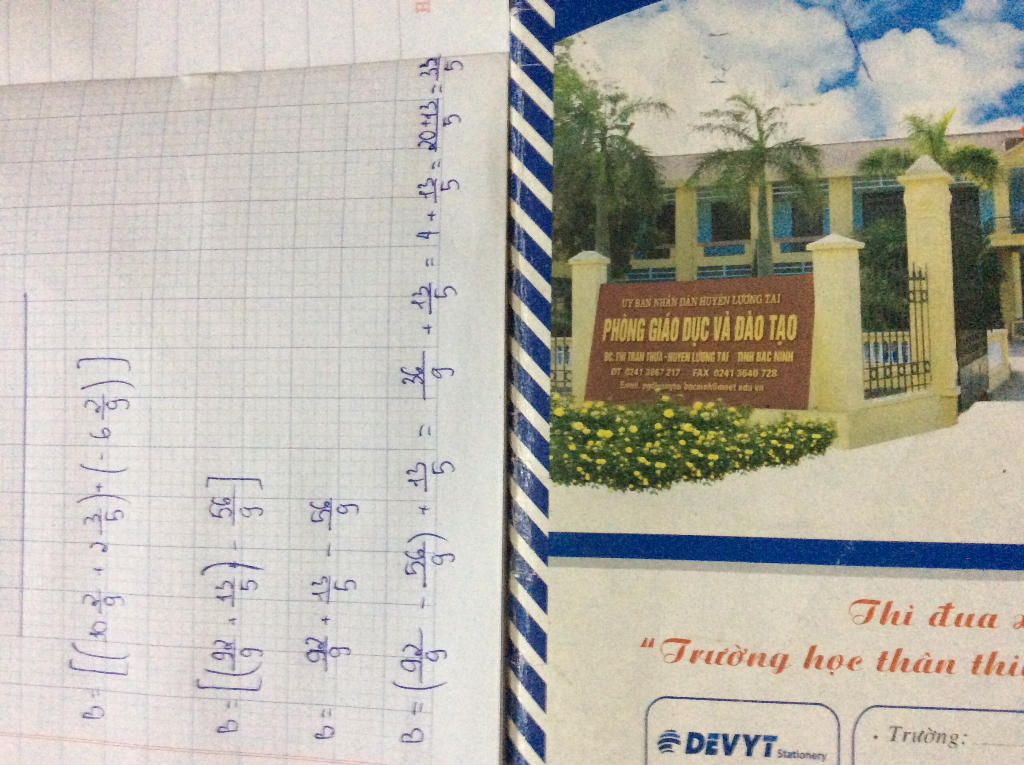 B = [(10 2/9 + 2 3/5) + (- 6 2/9)]
B = [(92/9 + 13/5) - 56/9]
B = 92/9 + 13/5 - 56/9
B = (92/9 - 56/9) + 13/5 = 36/9 + 13/5 = 4 + 13/5 = 20+13/5 = 33/5
UỶ BAN NHÂN DÂN HUYỆN LƯƠNG TÀI
PHÒNG GIÁO DỤC VÀ ĐÀO TẠO
ĐC. THỊ TRẤN THỨA - HUYỆN LƯƠNG TÀI TỈNH BẮC NINH
ĐT 0241 3867 217 FAX 0241 3640 728
Thi đua
"Trường học thân
DEVYT
Stationery
. Trường: